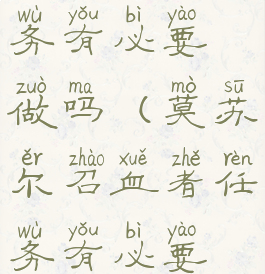 wù yǒu bì yào
务有必要
zuò ma mò sū
做吗（莫苏
ěr zhào xuě zhě rèn
尔召血者任
wù yǒu bì yào
务有必要